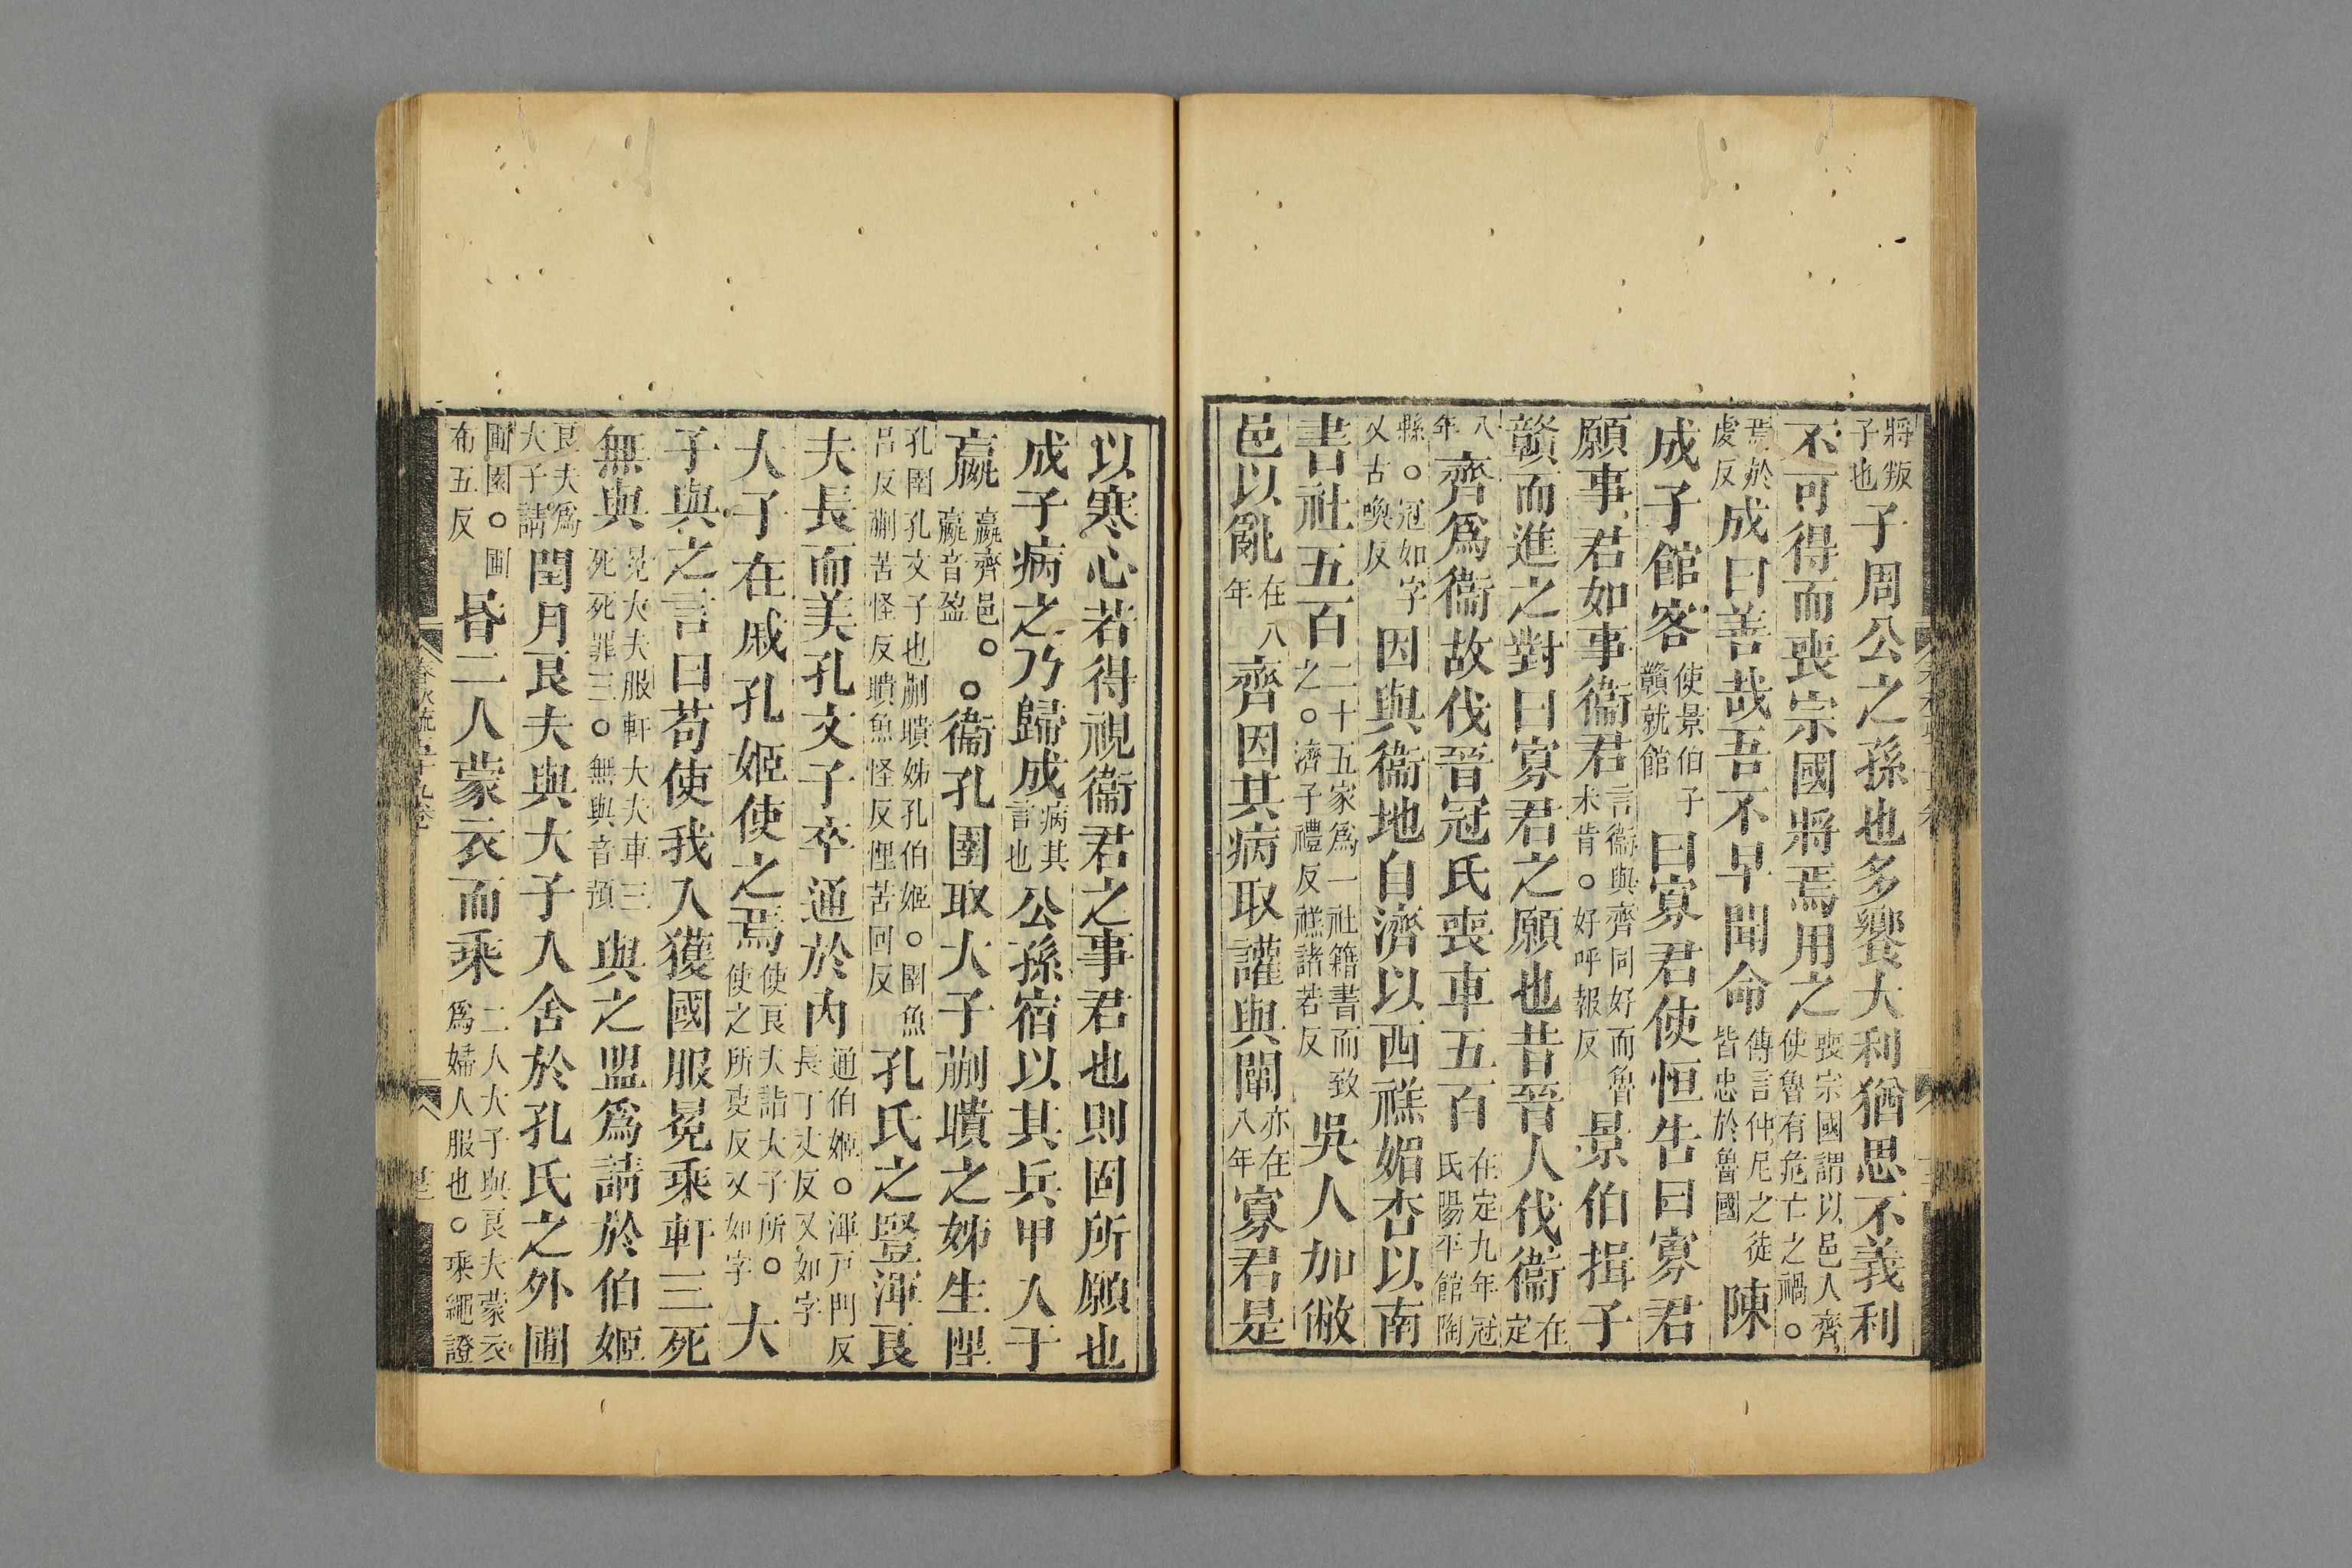 將叛子也子周公之孫也多饗大利猶思不義利
不可得而喪宗國將焉用之喪宗國謂以邑人齊使魯有危亡之禍○
焉於虔反成曰善哉吾不早聞命傳言仲尼之徒皆忠於魯國陳
成子館客使景伯子贛就館曰寡君使恒告曰寡君
願事君如事衞君言衞與齊同好而魯未肯○好呼報反景伯揖子
贛而進之對曰寡君之願也昔晉人伐衞在定
八年齊爲衞故伐晉冠氏喪車五百在定九年冠氏陽平館陶
縣○冠如字又古喚反因與衞地自濟以西禚媚杏以南
書社五百二十五家爲一社籍書而致之○濟子禮反禚諸若反吳人加敝
邑以亂在八年齊因其病取讙與闡亦在八年寡君是
以寒心若得視衞君之事君也則固所願也
成子病之乃歸成病其言也公孫宿以其兵甲入于
嬴嬴齊邑○嬴音盈○衞孔圉取大子蒯聵之姊生悝
孔圉孔文子也蒯聵姊孔伯姬○圉魚呂反蒯苦怪反聵魚怪反悝苦回反孔氏之豎渾良
夫長而美孔文子卒通於内通伯姬○渾戸門反長丁丈反又如字
大子在戚孔姬使之焉使良夫詣大子所○使之所吏反又如字大
子與之言曰苟使我入獲國服冕乘軒三死
無與冕大夫服軒大夫車三死死罪三○無與音預與之盟爲請於伯姬
良夫爲大子請閏月良夫與大子入舍於孔氏之外圃
圃園○圃布五反昬二人蒙衣而乘二人大子與良夫蒙衣爲婦人服也○乘繩證